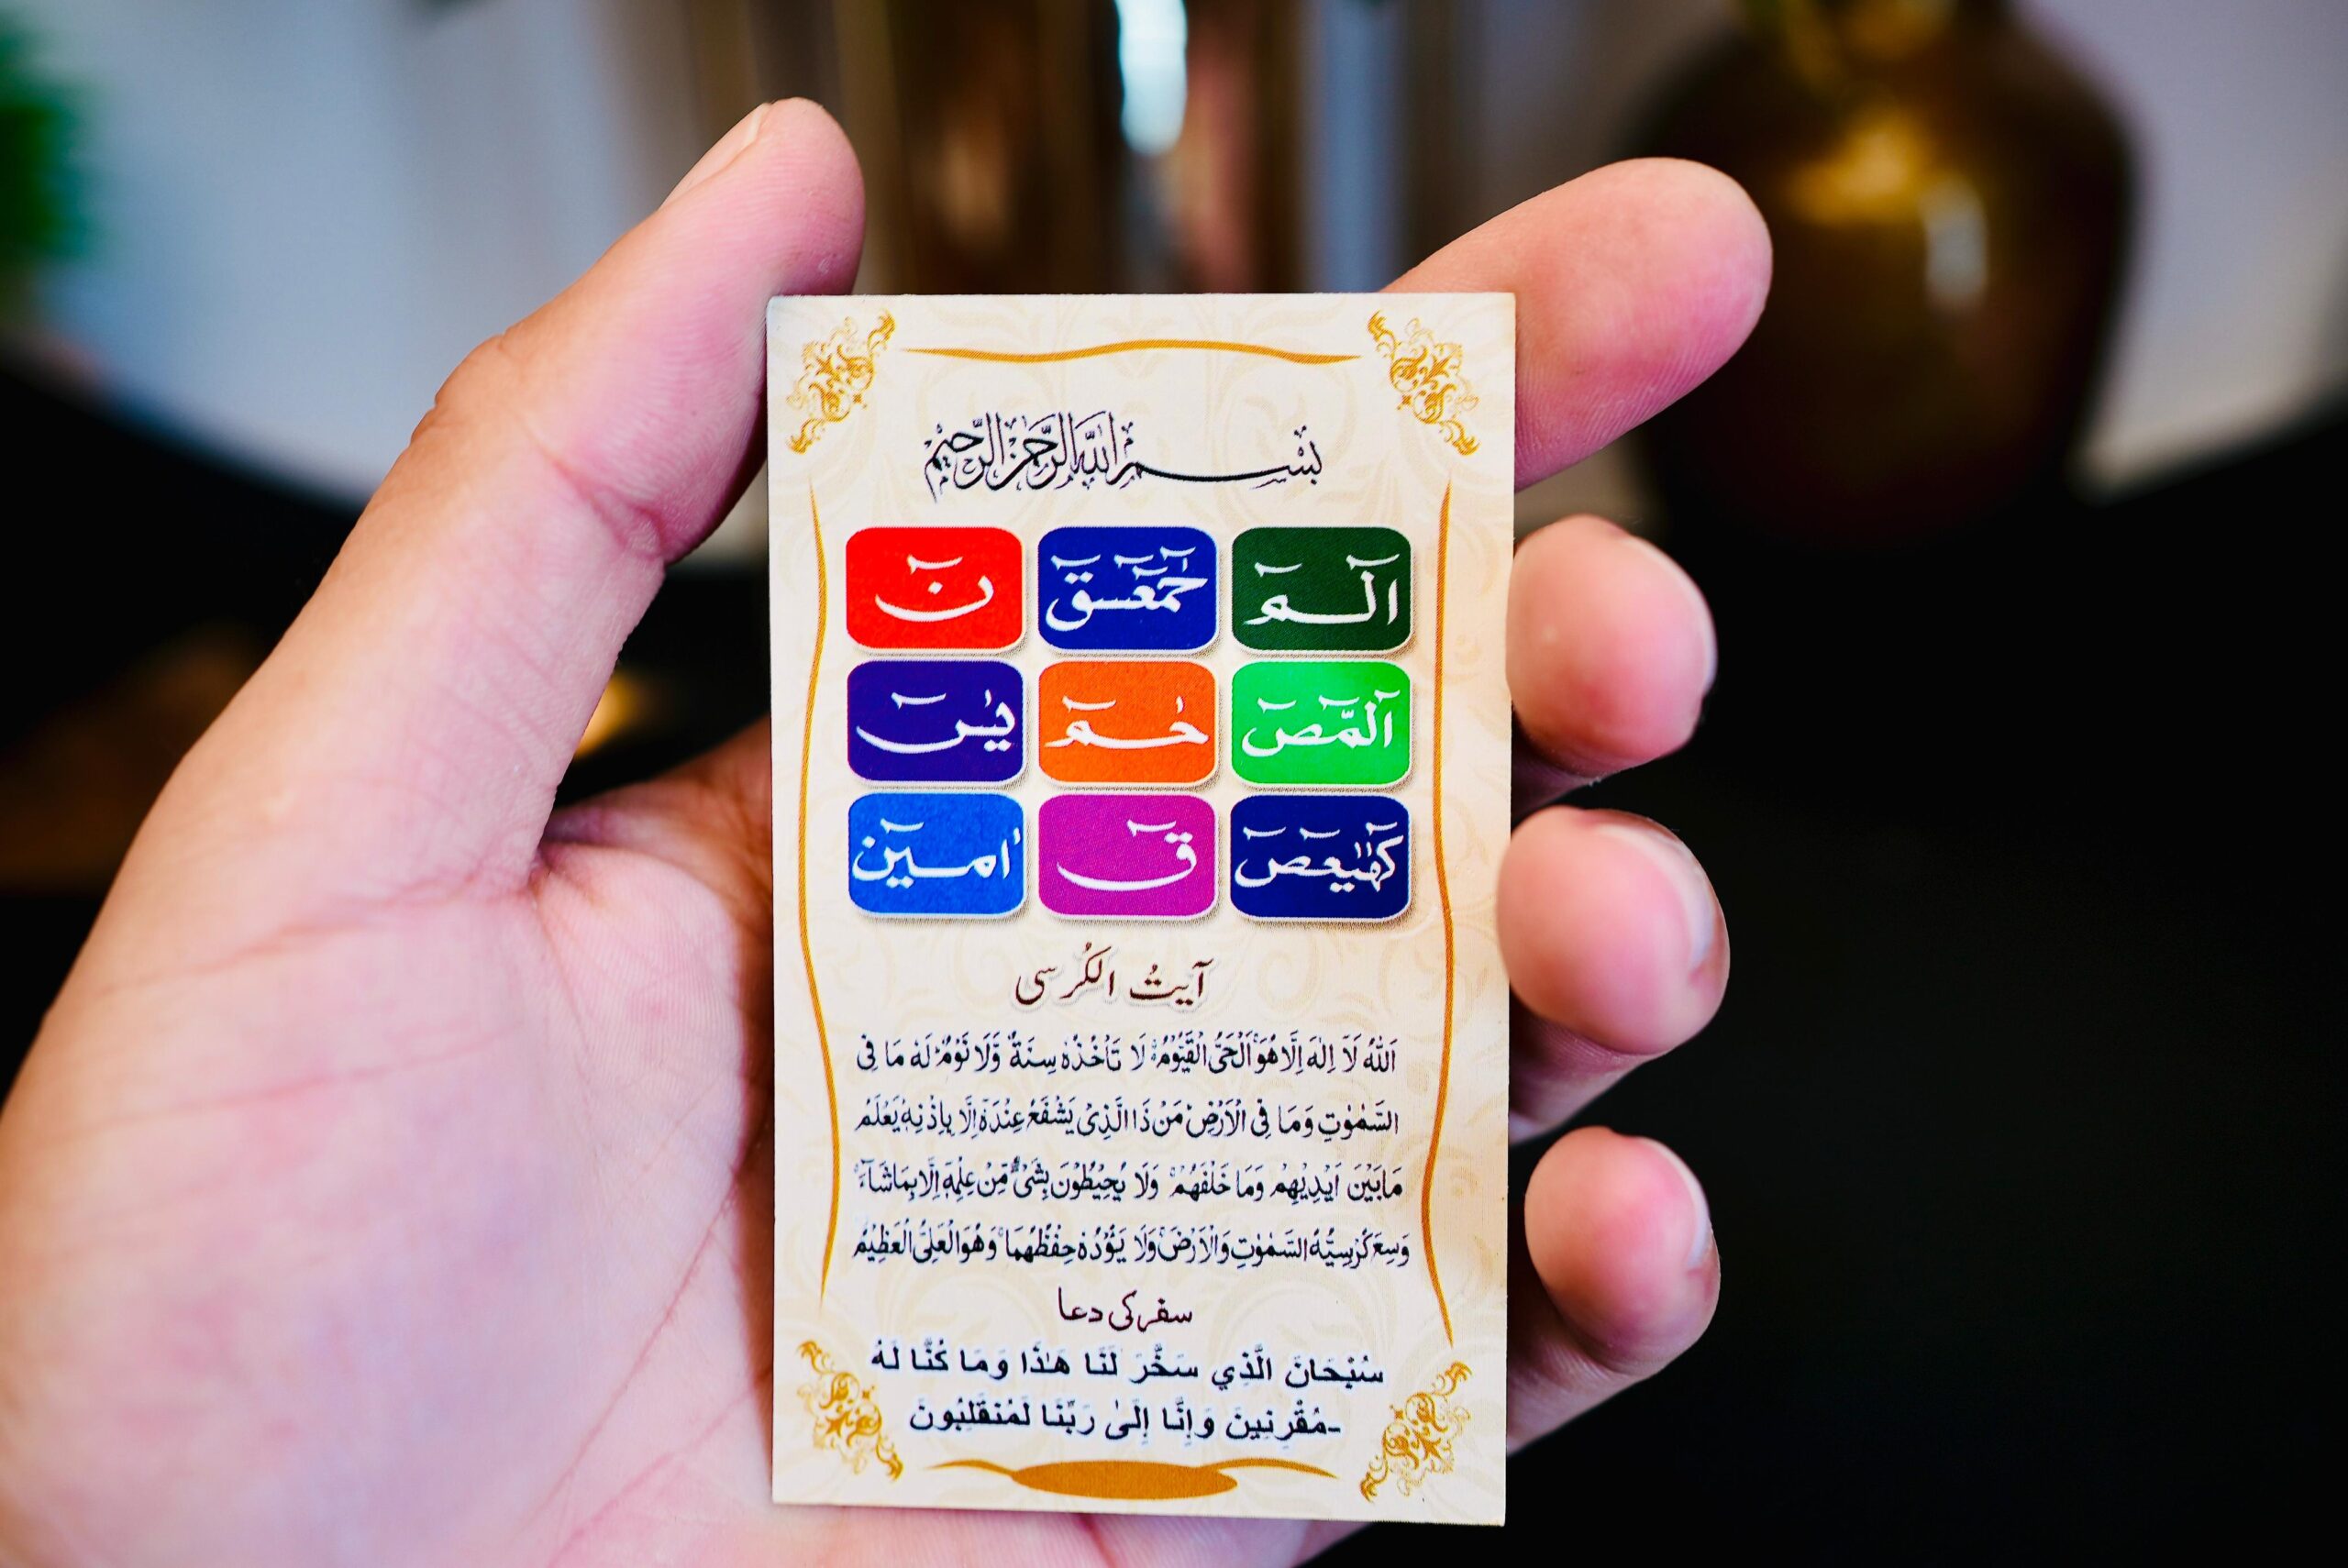 بِسْمِ اللهِ الرَّحْمٰنِ الرَّحِيْمِ
الٓمٓ حٓمٓعٓسٓقٓ نٓ
الٓمّٓصٓ حٰمٓ يٰسٓ
كٓهٰيٰعٓصٓ قٓ اٰمين
آیتُ الکُرسی
اَللهُ لَآ اِلٰهَ اِلَّا هُوَ اَلْحَىُّ الْقَيُّوْمُ ۚ لَا تَاْخُذُهٗ سِنَةٌ وَّلَا نَوْمٌ ؕ لَهٗ مَا فِى
السَّمٰوٰتِ وَمَا فِى الْاَرْضِ ؕ مَنْ ذَا الَّذِىْ يَشْفَعُ عِنْدَهٗٓ اِلَّا بِاِذْنِهٖ ؕ يَعْلَمُ
مَا بَيْنَ اَيْدِيْهِمْ وَمَا خَلْفَهُمْ ۚ وَلَا يُحِيْطُوْنَ بِشَىْءٍ مِّنْ عِلْمِهٖٓ اِلَّا بِمَا شَآءَ ۚ
وَسِعَ كُرْسِيُّهُ السَّمٰوٰتِ وَالْاَرْضَ ۚ وَلَا يَؤُدُهٗ حِفْظُهُمَا ۚ وَهُوَ الْعَلِىُّ الْعَظِيْمُ
سفر کی دعا
سُبْحَانَ الَّذِي سَخَّرَ لَنَا هَـٰذَا وَمَا كُنَّا لَهُ
مُقْرِنِينَ وَإِنَّا إِلَىٰ رَبِّنَا لَمُنقَلِبُونَ-